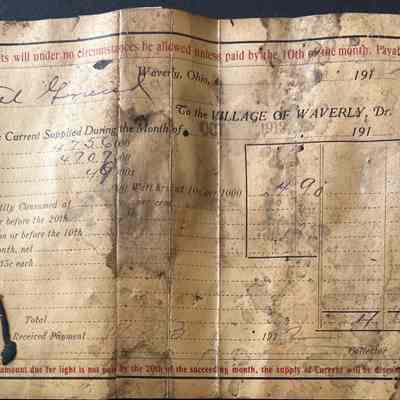 ts will under no circumstances be allowed unless paid by the 10th of the month. Payab
Waverly, Ohio, 191
To the VILLAGE OF WAVERLY, Dr.
Current Supplied During the Month of OCT 191
4756 00
4707 00
49 00
Watt hrs at 10c per 1000 4 90
tly Consumed at per cent
or before the 20th
on or before the 10th
onth, net
35c each
Total 4
Received Payment 2 191
Collector
amount due for light is not paid by the 20th of the succeeding month, the supply of Current will be discon